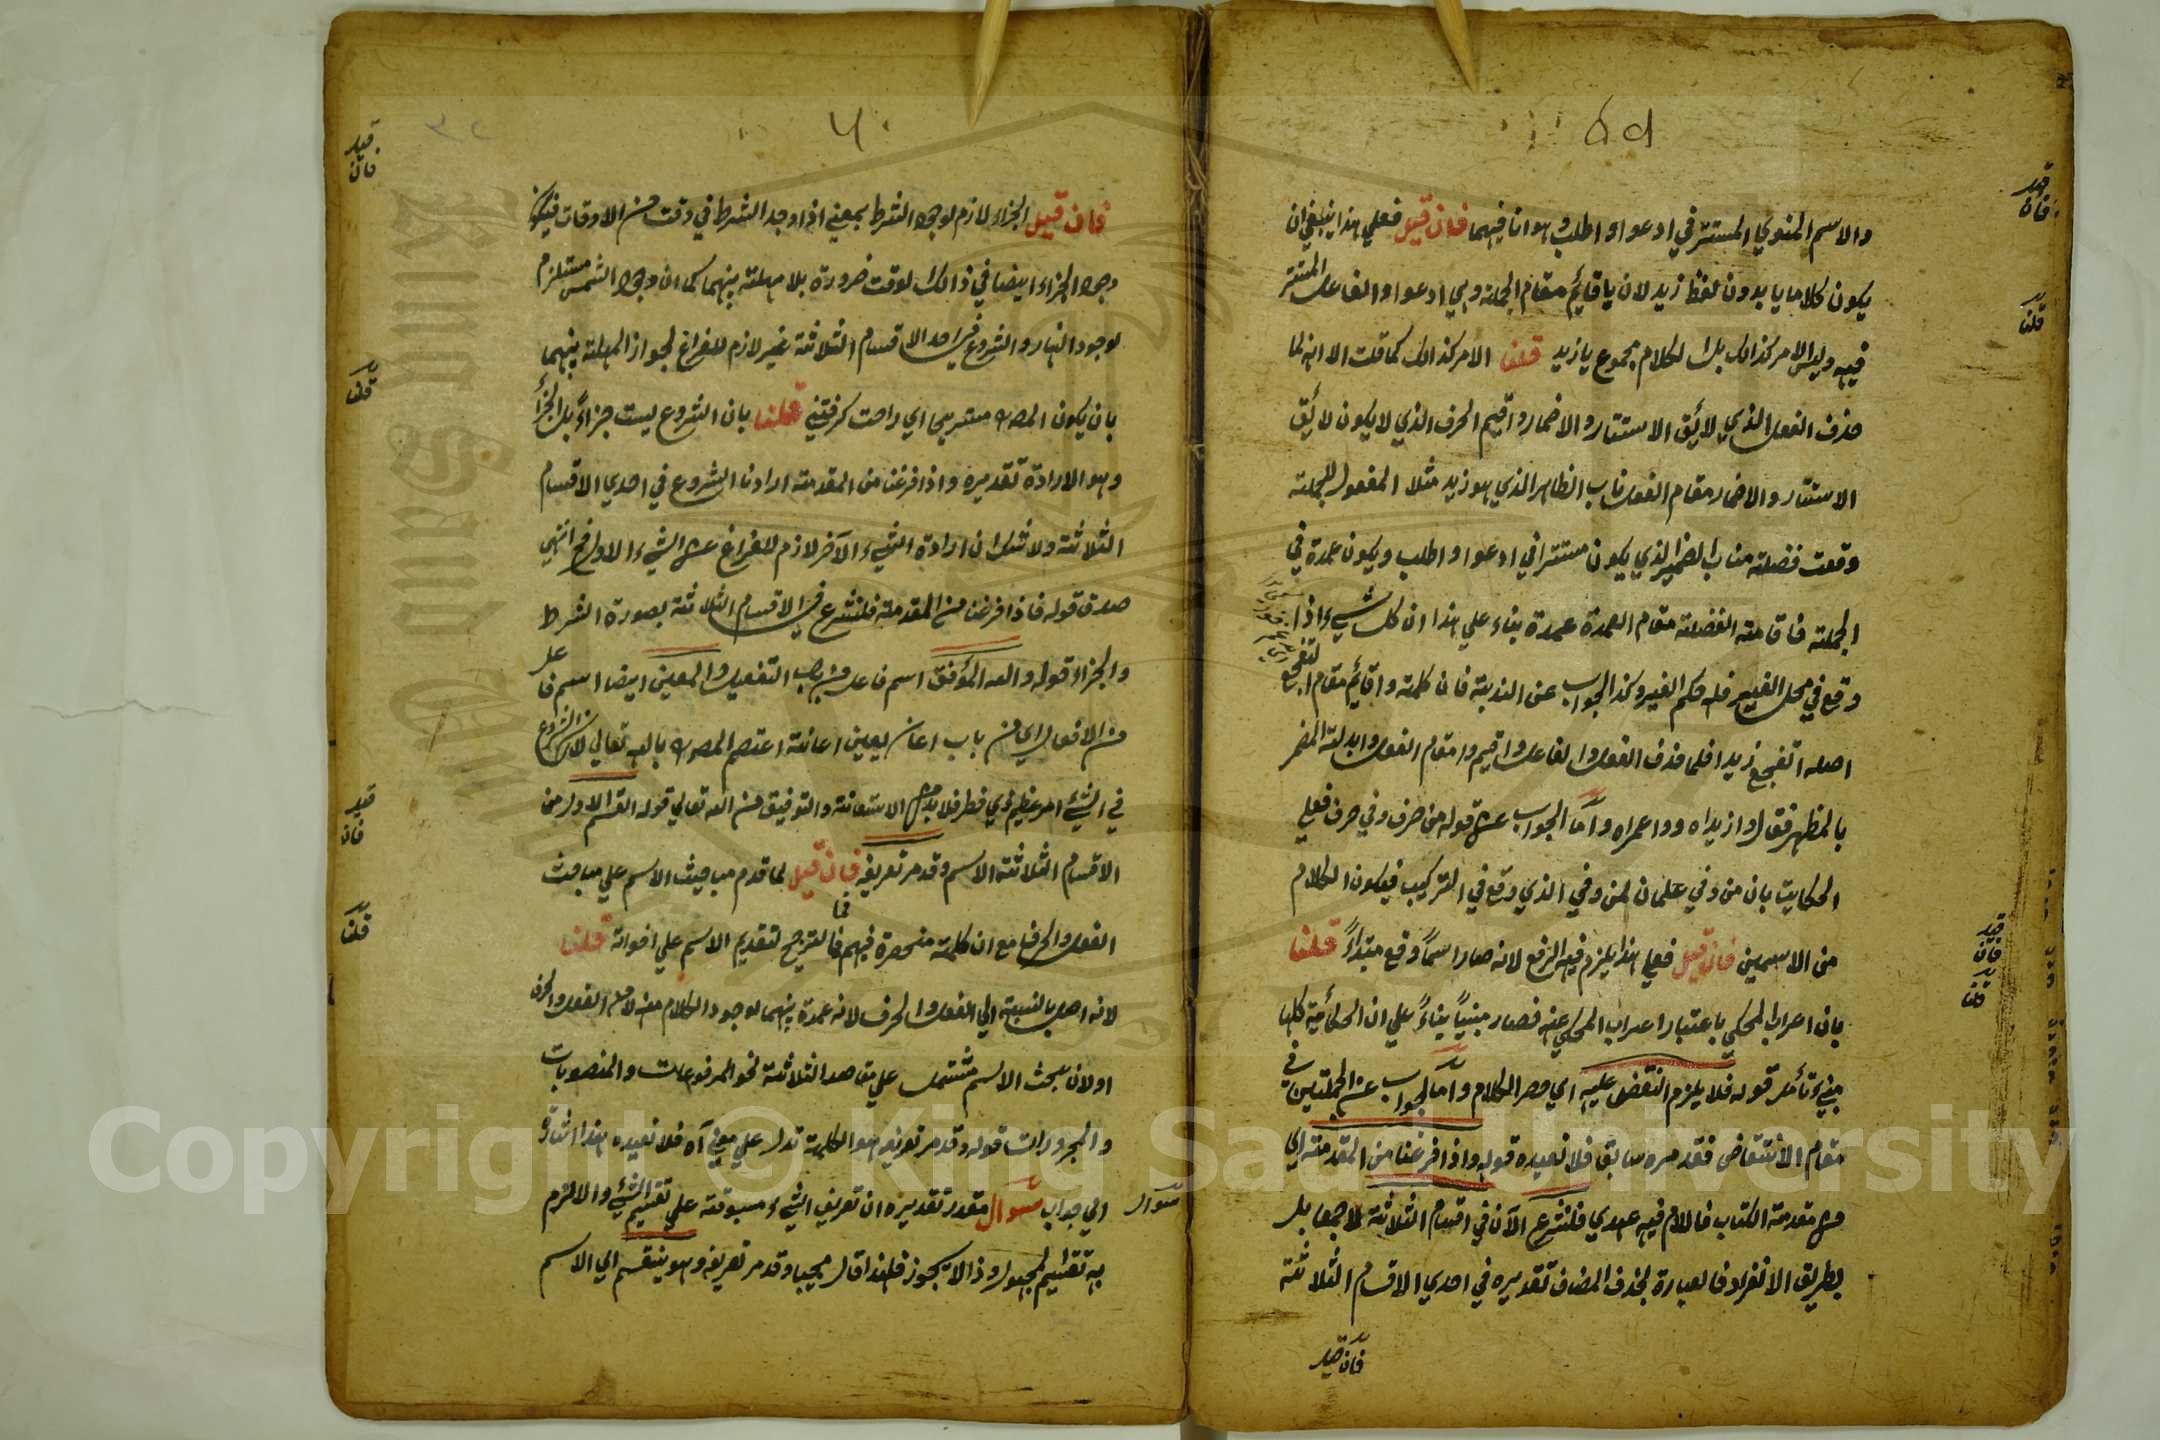 ٥٩
والاسم المنوي المستتر في ادعوا او اطلب وهو انا فيهما فان قيل فعلي هذا ينبغي ان
يكون كلاما يا بدون لفظ زيد لان يا قائم مقام الجملة وهي ادعوا والفاعل المستتر
فيه وليس الامر كذالك بل الكلام مجموع يا زيد قلنا الامر كذالك كما قلت الا انه لما
حذف الفعل الذي لائق الاستتار والاضمار واقيم الحرف الذي لا يكون لائق
الاستتار والاضمار مقام الفعل ناب الظاهر الذي هو زيد مثلا المفعول للجملة
وقعت فضلة مناب الضمير الذي يكون مستترا في ادعوا واطلب ويكون عمدة في
الجملة فاقامة الفضلة مقام العمدة عمدة بناء علي هذا ان كل شيء اذا
وقع في محل الغير فله حكم الغير وكذا الجواب عن الندبة فان كلمة وا قائم مقام اتفجع
اصله اتفجع زيدا فلما حذف الفعل والفاعل واقيم وا مقام الفعل وابدلت المضمر
بالمظهر فقال وا زيداه ووا عمراه واما الجواب عن قوله من حرف وفي حرف فعلي
الحكاية بان من وفي علمان لمن وفي الذي وقع في التركيب فيكون الكلام
من الاسمين فان قيل فعلي هذا يلزم فيه الرفع لانه صار اسماً وقع مبتداءً قلنا
بان اعراب المحكي باعتبار اعراب المحكي عنه فصار مبنياً بناءً علي ان الحكاية كلها
مبني تأمل قوله فلا يلزم النقض عليه اي حصر الكلام واما الجواب عن الجملتين في
مقام الانتقاض فقد مر سابق فلا نعيده قوله واذا فرغنا من المقدمة اي
من مقدمة الكتاب فاللام فيه عهدي فلنشرع الآن في اقسام الثلاثة لا جمعا بل
بطريق الانفراد فالعبارة بحذف المضاف تقديره في احدي الاقسام الثلاثة
فان قيل
قيل
فان
قلنا
قيل
فان
قلنا
٥٠
فان قيل الجزاء لازم لوجود الشرط بمعني اذا وجد الشرط في وقت من الاوقات فيكون
وجود الجزاء ايضا في ذالك لوقت ضرورة بلا مهلة بينهما كما ان وجود الشمس مستلزم
لوجود النهار والشروع في احد الاقسام الثلاثة غير لازم للفراغ لجواز المهلة بينهما
بان يكون المص مستريحا اي راحت كرفتني قلنا بان الشروع ليست جزاءً بل الجزأ
وهو الارادة تقديره واذا فرغنا من المقدمة اردنا الشروع في احدي الاقسام
الثلاثة ولا شك ان ارادة الشيء الآخر لازم للفراغ عن الشيء الاول فح انتهي
صدق قوله فاذا فرغنا من المقدمة فلنشرع في الاقسام الثلاثة بصورة الشرط
والجزاء قوله والله الموفق اسم فاعل من باب التفعيل والمعين ايضا اسم فاعل
من الافعال اي من باب اعان يعين اعانة اعتصم المص بالله تعالي لان الشروع
في الشيء امر عظيم ذي خطر فلا بد من الاستعانة والتوفيق من الله تعالي قوله القسم الاول من
الاقسام الثلاثة الاسم وقد مر تعريفه فان قيل لما قدم مباحيث الاسم علي مباحث
الفعل والحرف مع ان كلمة منحصرة فيهم فما الترجيح لتقديم الاسم علي اخواته قلنا
لانه اصل بالنسبة الي الفعل والحرف لانه عمدة بينهما لوجود الكلام منه لا من الفعل والحرف
او لان مبحث الاسم مشتمل علي مقاصد الثلاثة نحو المرفوعات والمنصوبات
والمجرورات قوله وقد مر تعريفه هو الكلمة تدل علي معني آه فلا نعيده هذا اشارة
الي جواب سوال مقدر تقديره ان تعريف الشيء مسبوقة علي تقسيم الشيء والا لزم
به تقسيم المجهول وذا لا يجوز فلهذا قال مجيبا وقد مر تعريفه وهو ينقسم الي الاسم
قيل
فان
قلنا
قيل
فان
قلنا
سوال
Copyright © King Saud University